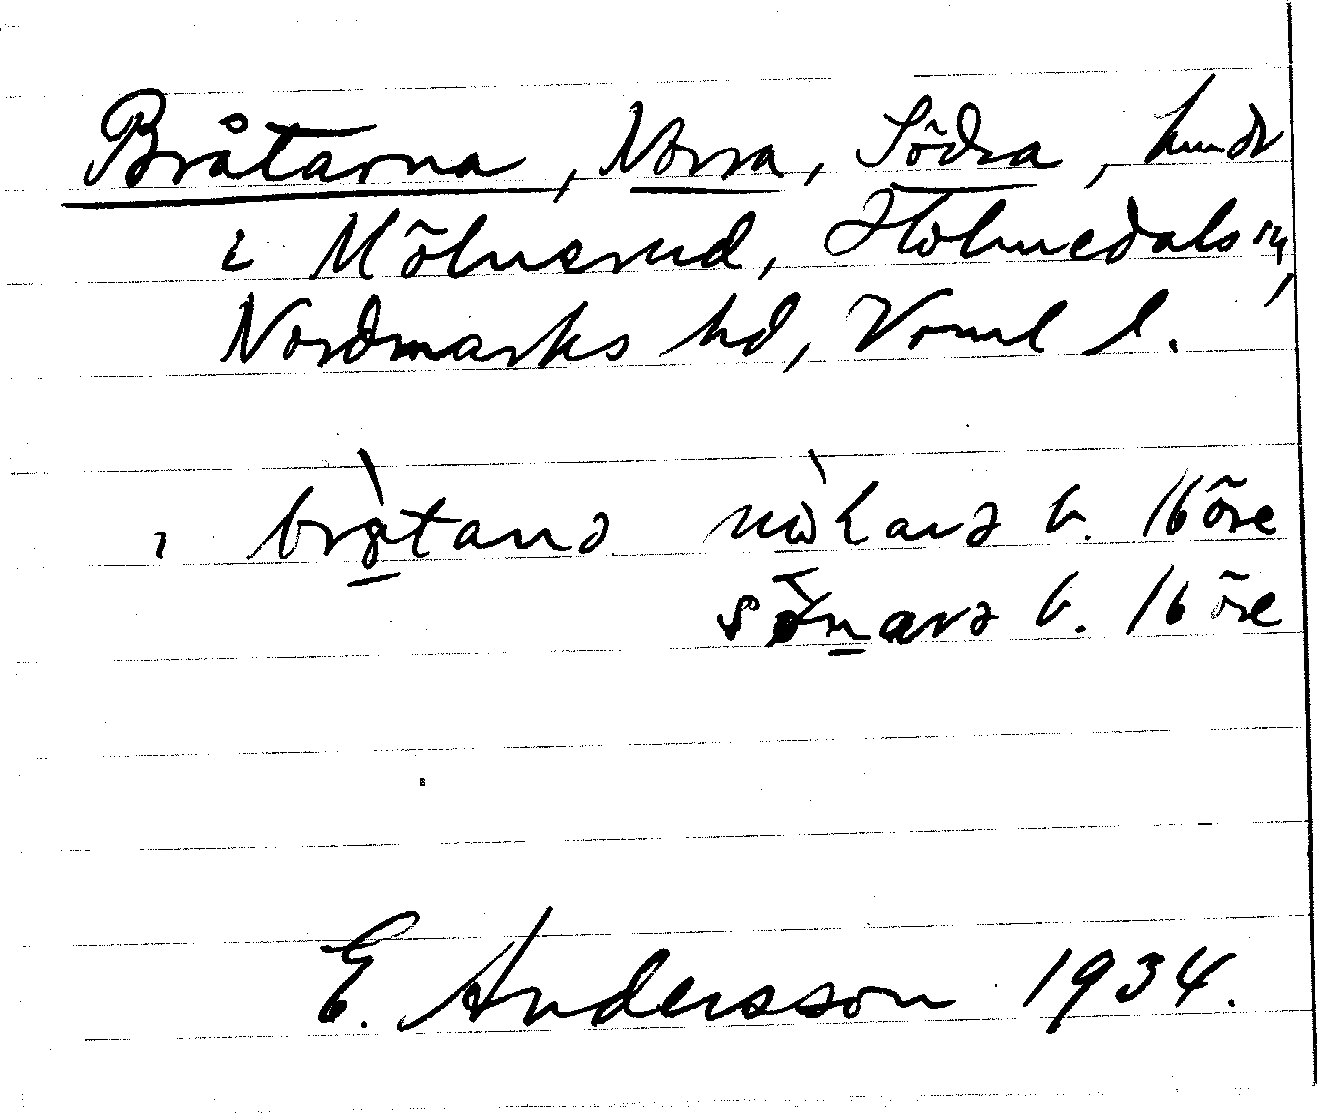 Bråtarna, Norra, Södra, hmdr
i Mölnerud, Holmedals sn,
Nordmarks hd, Värml l.
ı bròtana nòLara b. 16 öre
sönara b. 16 öre
E. Andersson 1934.